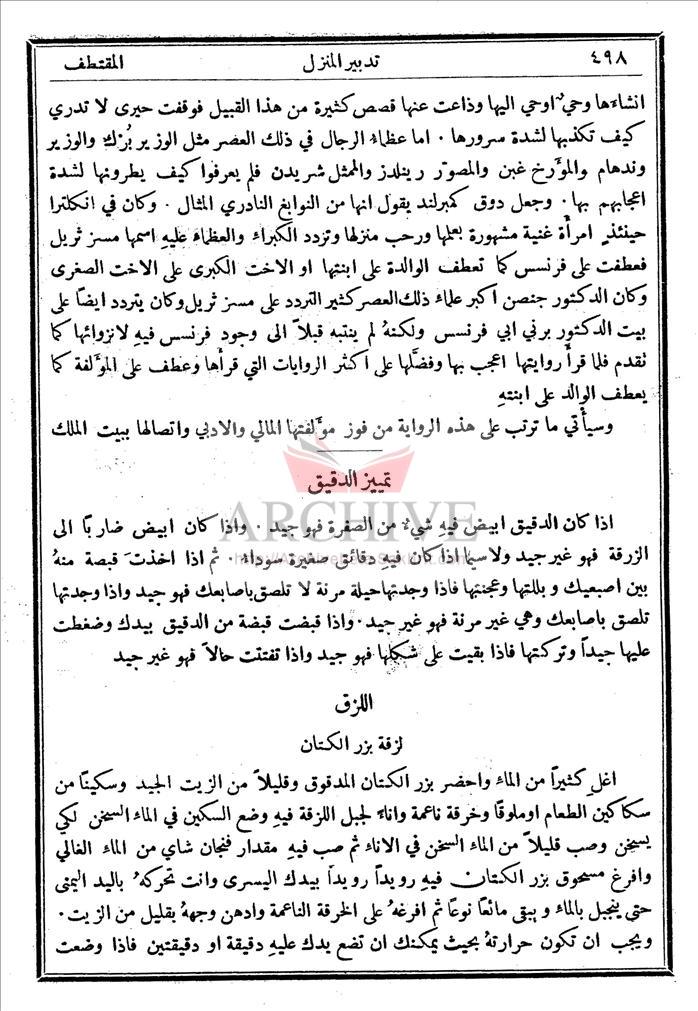 ٤٩٨ تدبير المنزل المقتطف
انشاءها وحي اوحي اليها وذاعت عنها قصص كثيرة من هذا القبيل فوقفت حيرى لا تدري
كيف تكذبها لشدة سرورها . اما عظماء الرجال في ذلك العصر مثل الوزير بُرْك والوزير
وندهام والمؤرخ غبن والمصور رينلدز والممثل شريدن فلم يعرفوا كيف يطرونها لشدة
اعجابهم بها . وجعل دوق كمبرلند يقول انها من النوابغ النادري المثال . وكان في انكلترا
حينئذٍ امرأة غنية مشهورة بعلمها ورحب منزلها وتردد الكبراء والعظماء عليهِ اسمها مسز ثريل
فعطفت على فرنسس كما تعطف الوالدة على ابنتها او الاخت الكبرى على الاخت الصغرى
وكان الدكتور جنصن اكبر علماء ذلك العصر كثير التردد على مسز ثريل وكان يتردد ايضاً على
بيت الدكتور برني ابي فرنسس ولكنهُ لم ينتبه قبلاً الى وجود فرنسس فيهِ لانزوائها كما
تقدم فلما قرأ روايتها اعجب بها وفضَّلها على اكثر الروايات التي قرأها وعطف على المؤلفة كما
يعطف الوالد على ابنتهِ
وسيأتي ما ترتب على هذه الرواية من فوز مؤلفتها المالي والادبي واتصالها ببيت الملك
تمييز الدقيق
ARCHIVE
اذا كان الدقيق ابيض فيهِ شيءٌ من الصفرة فهو جيد . واذا كان ابيض ضاربًا الى
الزرقة فهو غير جيد ولا سيما اذا كان فيهِ دقائق صغيرة سوداء . ثم اذا اخذتَ قبصة منهُ
بين اصبعيك وبللتها وعجنتها فاذا وجدتها حيلة مرنة لا تلصق باصابعك فهو جيد واذا وجدتها
تلصق باصابعك وهي غير مرنة فهو غير جيد . واذا قبضت قبضة من الدقيق بيدك وضغطت
عليها جيداً وتركتها فاذا بقيت على شكلها فهو جيد واذا تفتتت حالاً فهو غير جيد
اللزق
لزقة بزر الكتان
اغل كثيراً من الماء واحضر بزر الكتان المدقوق وقليلاً من الزيت الجيد وسكينًا من
سكاكين الطعام او ملوقًا وخرقة ناعمة واناء لجبل اللزقة فيهِ وضع السكين في الماء السخن لكي
يسخن وصب قليلاً من الماء السخن في الاناء ثم صب فيهِ مقدار فنجان شاي من الماء الغالي
وافرغ مسحوق بزر الكتان فيهِ رويداً رويداً بيدك اليسرى وانت تحركهُ باليد اليمنى
حتى ينجبل بالماء ويبقى مائعًا نوعًا ثم افرغهُ على الخرقة الناعمة وادهن وجههُ بقليل من الزيت .
ويجب ان تكون حرارتهُ بحيث يمكنك ان تضع يدك عليهِ دقيقة او دقيقتين فاذا وضعت